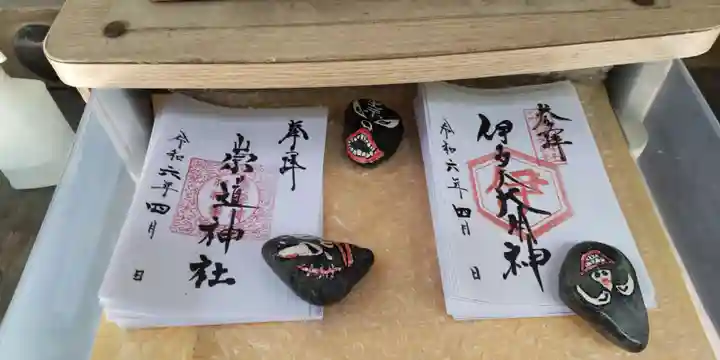 奉拝
崇道神社
令和六年四月 日
奉拝
伊多太大神
令和六年四月 日